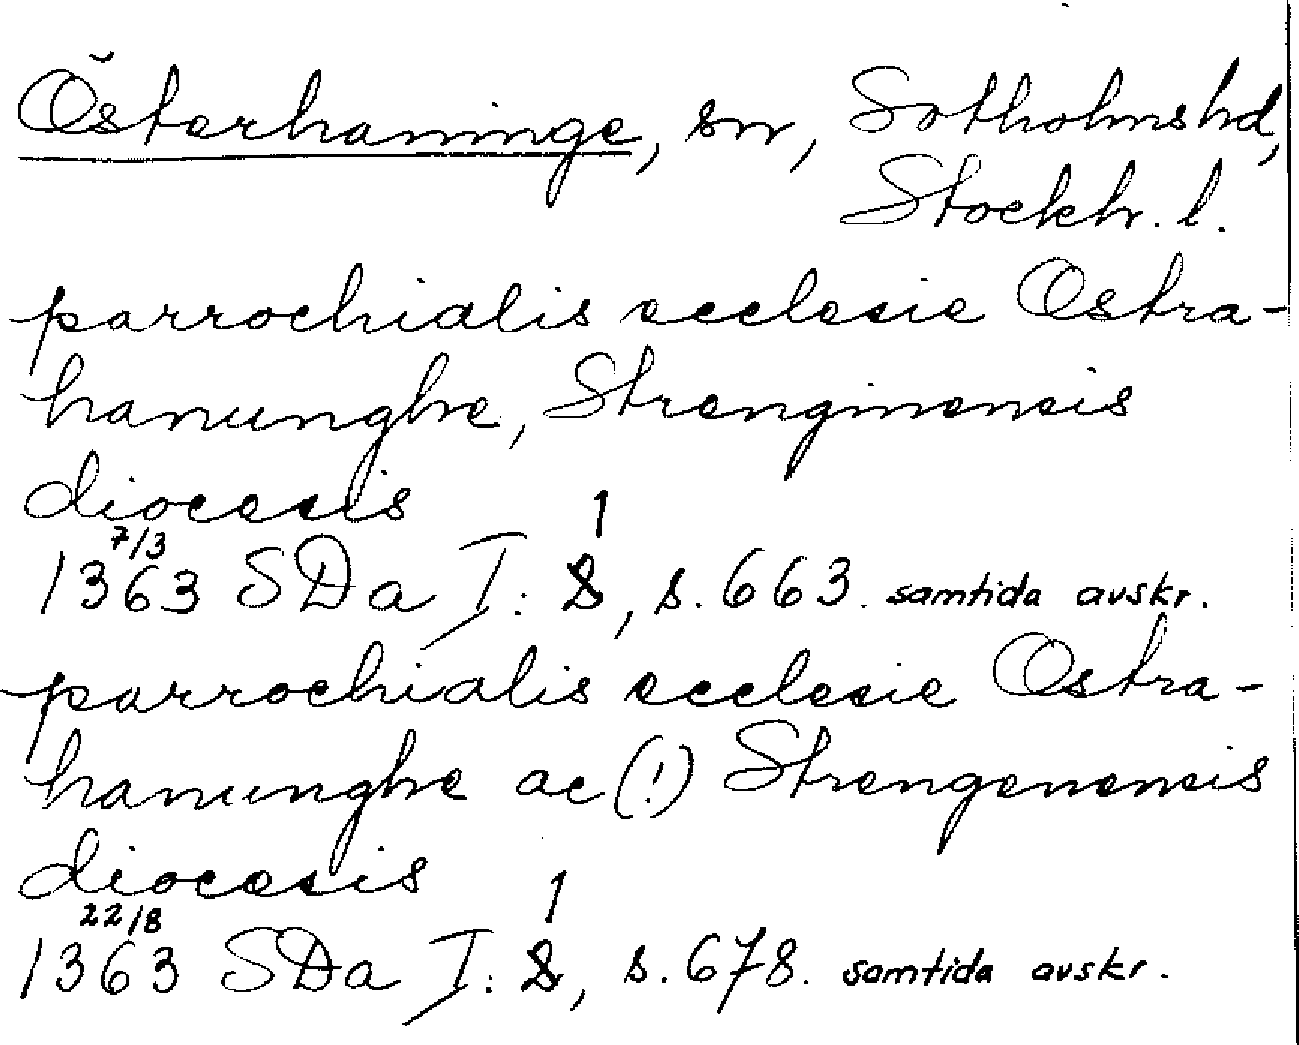 Österhaninge, sn, Sotholms hd,
Stockh. l.
parrochialis ecclesie Ostra-
hanunghe, Strenginensis
diocesis
1363 7/3 SDa I: 1, s. 663. samtida avskr.
parrochialis ecclesie Ostra-
hanunghe ac (!) Strengenensis
diocesis
1363 22/8 SDa I: 1, s. 678. samtida avskr.